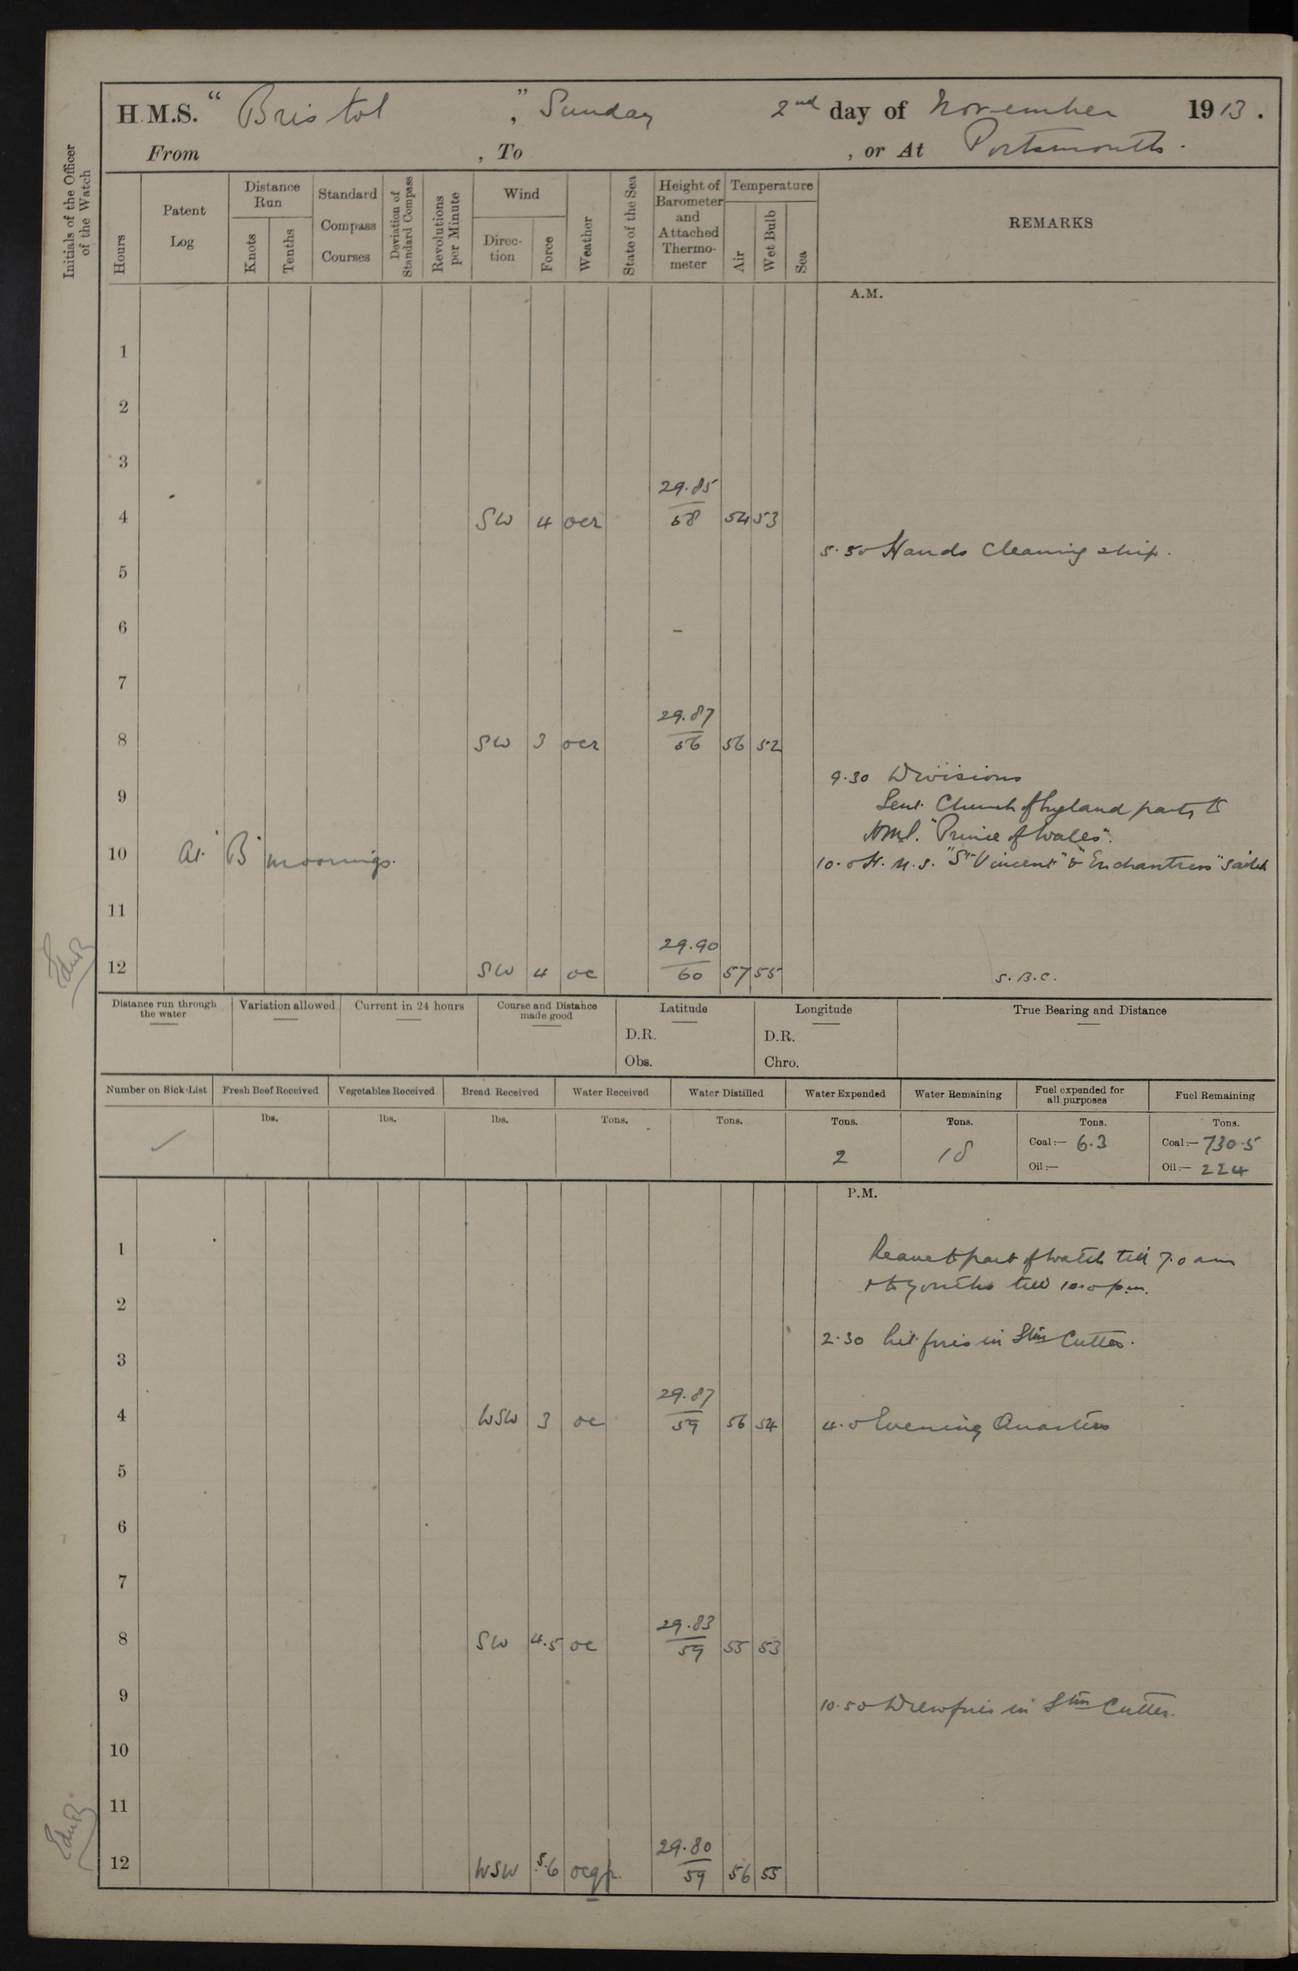 H.M.S. "Bristol", Sunday 2nd day of November 1913.
From , To , or At Portsmouth.
Initials of the Officer of the Watch
Hours
Patent Log
Distance Run
Knots
Tenths
Standard Compass Courses
Deviation of Standard Compass
Revolutions per Minute
Wind
Direction
Force
Weather
State of the Sea
Height of Barometer and Attached Thermometer
Temperature
Air
Wet Bulb
Sea
REMARKS
A.M.
1
2
3
4 SW 4 ocr 29.85 58 54 53
5.50 Hands Cleaning ship.
5
6
7
8 SW 3 ocr 29.87 56 56 52
9.30 Divisions
9
Sent Church of England party to
H.M.S. "Prince of Wales".
10 At "B" moorings.
10.0 H.M.S. "St Vincent" & "Enchantress" sailed
11
12 SW 4 oc 29.90 60 57 55
S.B.C.
Distance run through the water
Variation allowed
Current in 24 hours
Course and Distance made good
Latitude
D.R.
Obs.
Longitude
D.R.
Chro.
True Bearing and Distance
Number on Sick List
Fresh Beef Received
lbs.
Vegetables Received
lbs.
Bread Received
lbs.
Water Received
Tons.
Water Distilled
Tons.
Water Expended
Tons.
2
Water Remaining
Tons.
18
Fuel expended for all purposes
Tons.
Coal:— 6.3
Oil:—
Fuel Remaining
Tons.
Coal:— 730.5
Oil:— 224
P.M.
1
Leave to part of watch till 7.0 am
& to youths till 10.0 p.m.
2
2.30 Lit fires in Stm Cutter.
3
4 WSW 3 oc 29.87 59 56 54 4.0 Evening Quarters
5
6
7
8 SW 4.5 oc 29.83 59 55 53
9
10.50 Drew fires in Stm Cutter.
10
11
12 WSW 5.6 ocqp. 29.80 59 56 55